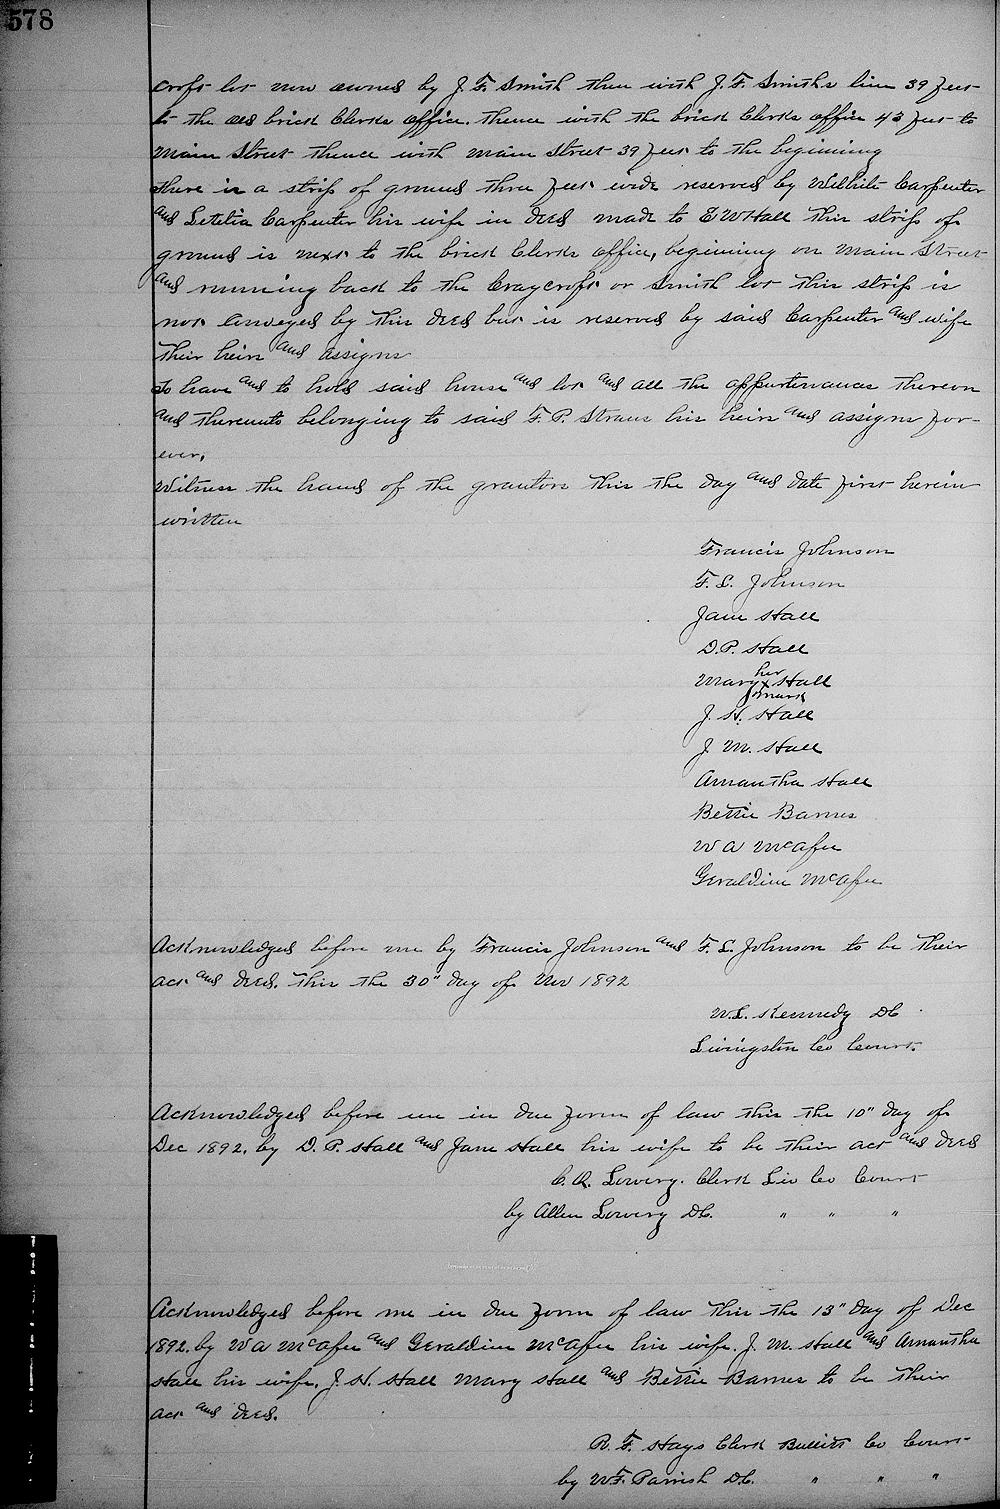 578
croft lot now owned by J. F. Smith then with J. F. Smiths line 39 feet
to the old brick Clerks office. thence with the brick Clerks office 43 feet to
Main Street thence with main Street 39 feet to the beginning
There is a strip of ground three feet wide reserved by Wilhite Carpenter
and Letitia Carpenter his wife in deed made to E W Hall this strip of
ground is next to the brick Clerks office, beginning on Main Street
and running back to the Craycroft or Smith lot this strip is
not conveyed by this deed but is reserved by said Carpenter and wife
their heirs and assigns
To have and to hold said house and lot and all the appurtenances thereon
and thereunto belonging to said F. P. Straus his heirs and assigns for-
ever.
Witness the hands of the grantors this the day and date first herein
written
Francis Johnson
F. L. Johnson
Jane Hall
D. P. Hall
Mary her x mark Hall
J. H. Hall
J. M. Hall
Amantha Hall
Bettie Barnes
W A McAfee
Geraldine McAfee
Acknowledged before me by Francis Johnson and F. L. Johnson to be their
act and deed. this the 30" day of Nov 1892
W. L. Kennedy DC
Livingston Co Court.
Acknowledged before me in due form of law this the 10" day of
Dec 1892. by D. P. Hall and Jane Hall his wife to be their act and deed
C. A. Lowery. Clerk Liv Co Court
by Allen Lowery DC. " " "
Acknowledged before me in due form of law this the 13" day of Dec
1892. by W A McAfee and Geraldine McAfee his wife. J. M. Hall and Amantha
Hall his wife, J. H. Hall Mary Hall and Bettie Barnes to be their
act and deed.
R. F. Hays Clerk Bullitt Co Court
by W. F. Parrish DC. " " "